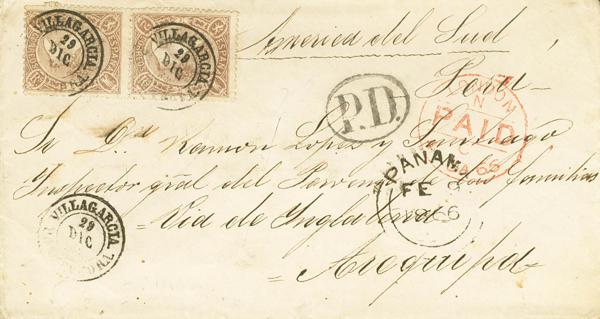 VILLAGARCIA
29
DIC
VILLAGARCIA
29
DIC
America del Sud
Peru
P.D.
LONDON
PAID
66
Sr Dn Ramon Lopez y Santiago
PANAMA
FE
1866
Inspector gral del familias
Via de Inglaterra
VILLAGARCIA
29
DIC
Arequipa